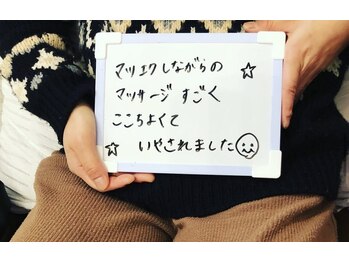 マツエクしながらの
マッサージ すごく
ここちよくて
いやされました